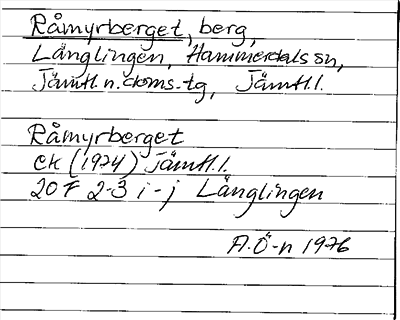 Råmyrberget, berg,
Långlingen, Hammerdals sn,
Jämtl. n. doms.tg, Jämtl. l.
Råmyrberget
ek (1974) Jämtl. l.
20 F 2-3 i-j Långlingen
A.Ö-n 1976